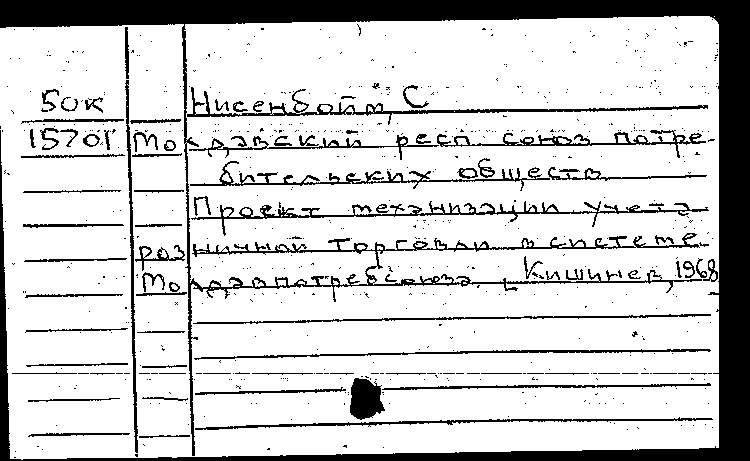 50к Нисенбойм, С
15701 Молдавский респ союз потре-
бительских обществ.
Проект механизации учета
розничной торговли в системе
Молдавпотребсоюза. Кишинев, 1968